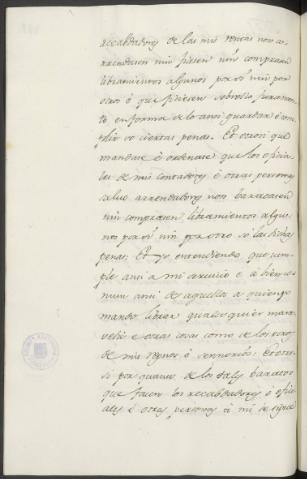 recabdadores de las mis rentas non a-
rrendasen nin ficiesen nin comprasen
libramientos algunos por sí nin por
otros é que ficiesen sobrello juramen-
to en forma de lo ansi guardar é com-
plir so ciertas penas. Et otrosi que
mandase é ordenase que los oficia-
les de mis contadores é otras personas
salvo arrendadores non baratasen
nin comprasen libramientos algu-
nos por sí nin por otro so las dichas
penas. Et yo entendiendo que cum-
ple ansi á mi servicio é á bien co-
mun ansi de aquellos á quien yo
mando librar qualesquier mara-
vedis é otras cosas como de los
de mis regnos é sennorios. Et otro-
si por quanto de los tales baratos
que facen los recabdadores é ofi-
ciales é otras personas á mi se sigue